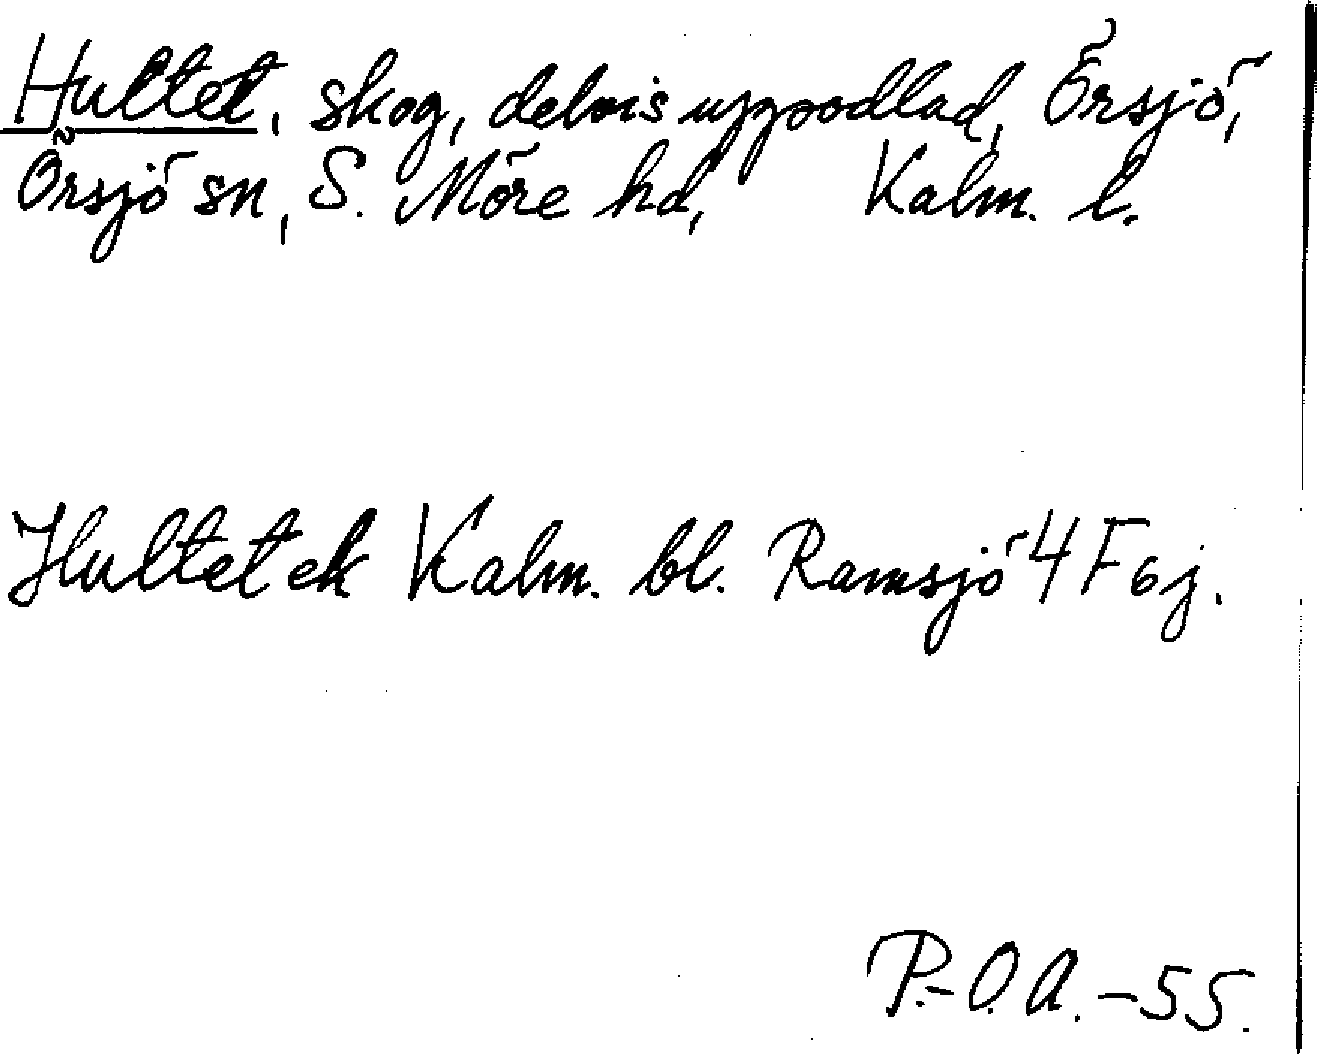 Hultet, skog, delvis uppodlad, Örsjö,
Örsjö sn, S. Möre hd, Kalm. l.
Hultet ek Kalm. bl. Ramsjö 4F6j.
P.-O.A.-55.